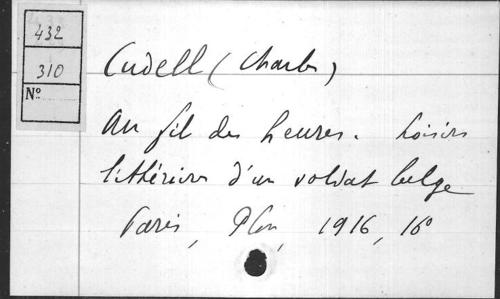 432
310
N°
Cudell (Charles)
Au fil des heures. Loisirs
littéraires d'un soldat belge
Paris, Plon, 1916, 16°